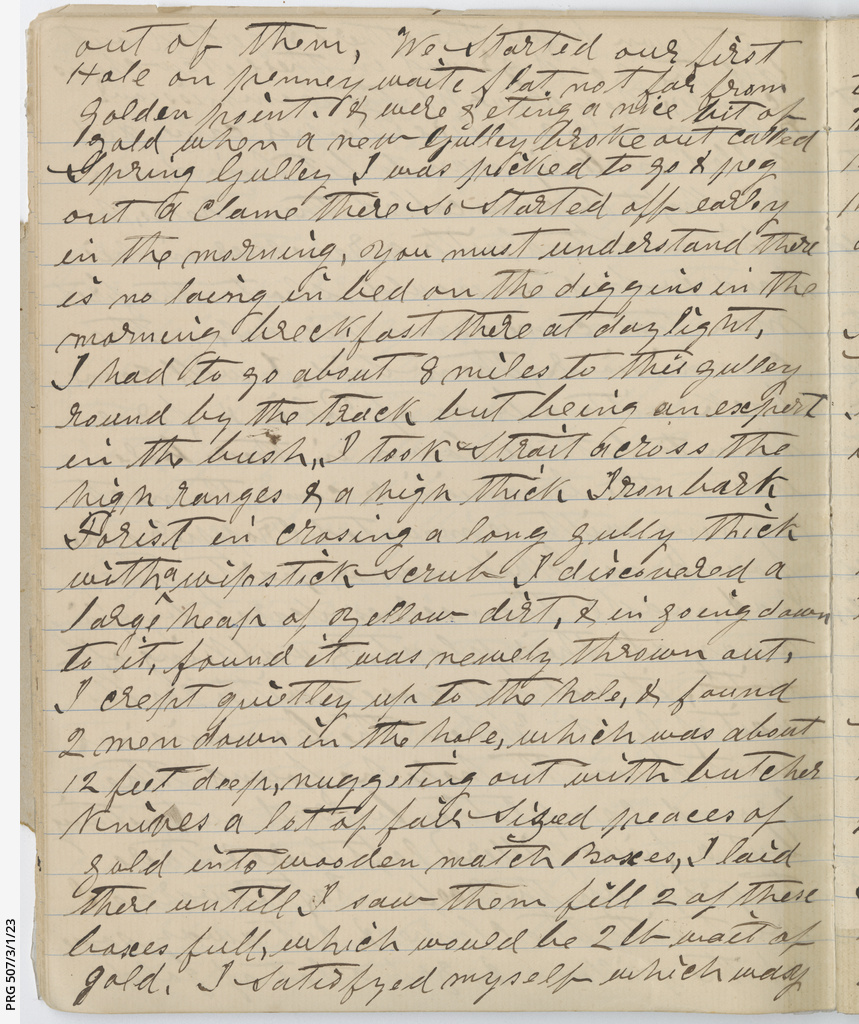 out of them, We started our first
Hole on penneywaite flat not far from
golden point. & were geting a nice bit of
gold when a new Gulley broke out called
Spring Gulley I was picked to go & peg
out a clame there so started off earley
in the morning, you must understand there
is no laing in bed on the diggins in the
morning breckfast there at daylight,
I had to go about 8 miles to this gulley
round by the track but being an expert
in the bush, I took strait across the
high ranges & a high thick Ironbark
Forist in crosing a long gully thick
with a wipstick scrub I discovered a
large heap of yellow dirt, & in going down
to it, found it was newely thrown out,
I crept quietley up to the hole, & found
2 men down in the hole, which was about
12 feet deep, nuggeting out with butcher
Knives a lot of fair sized peaces of
gold into wooden match Boxes, I laid
there untill I saw them fill 2 of these
boxes full, which would be 2 lb wait of
gold. I satisfyed myself which way
PRG 507/3/1/23